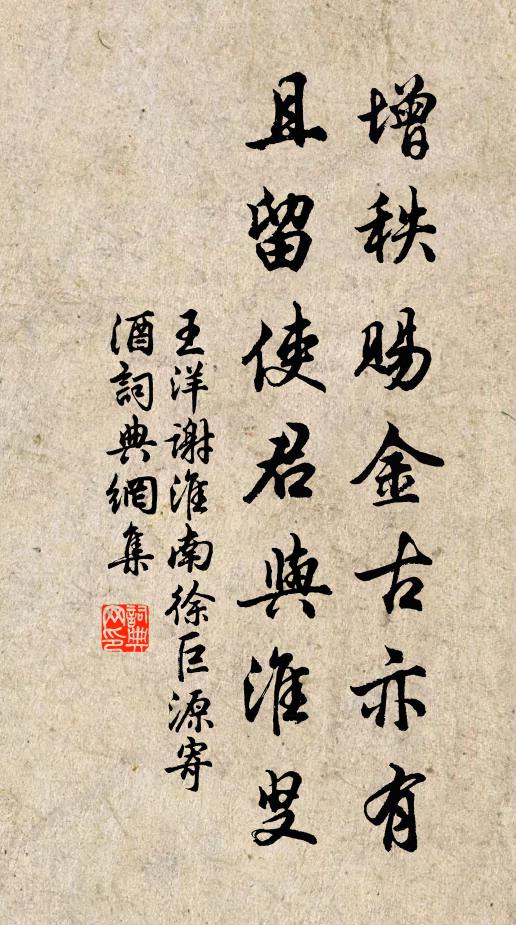 增秩賜金古亦有
且留使君與淮叟
王洋謝淮南徐巨源寄
酒詞典網集
詞典
网印